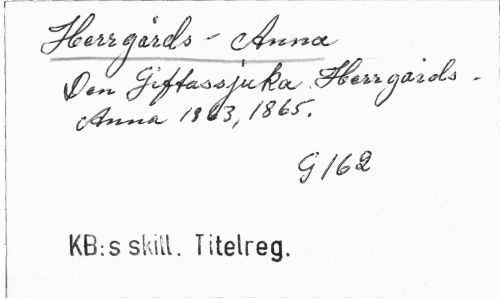 Herrgårds - Anna
Den Giftassjuka Herrgårds -
Anna 1863, 1865.
G 162
KB:s skill. Titelreg.